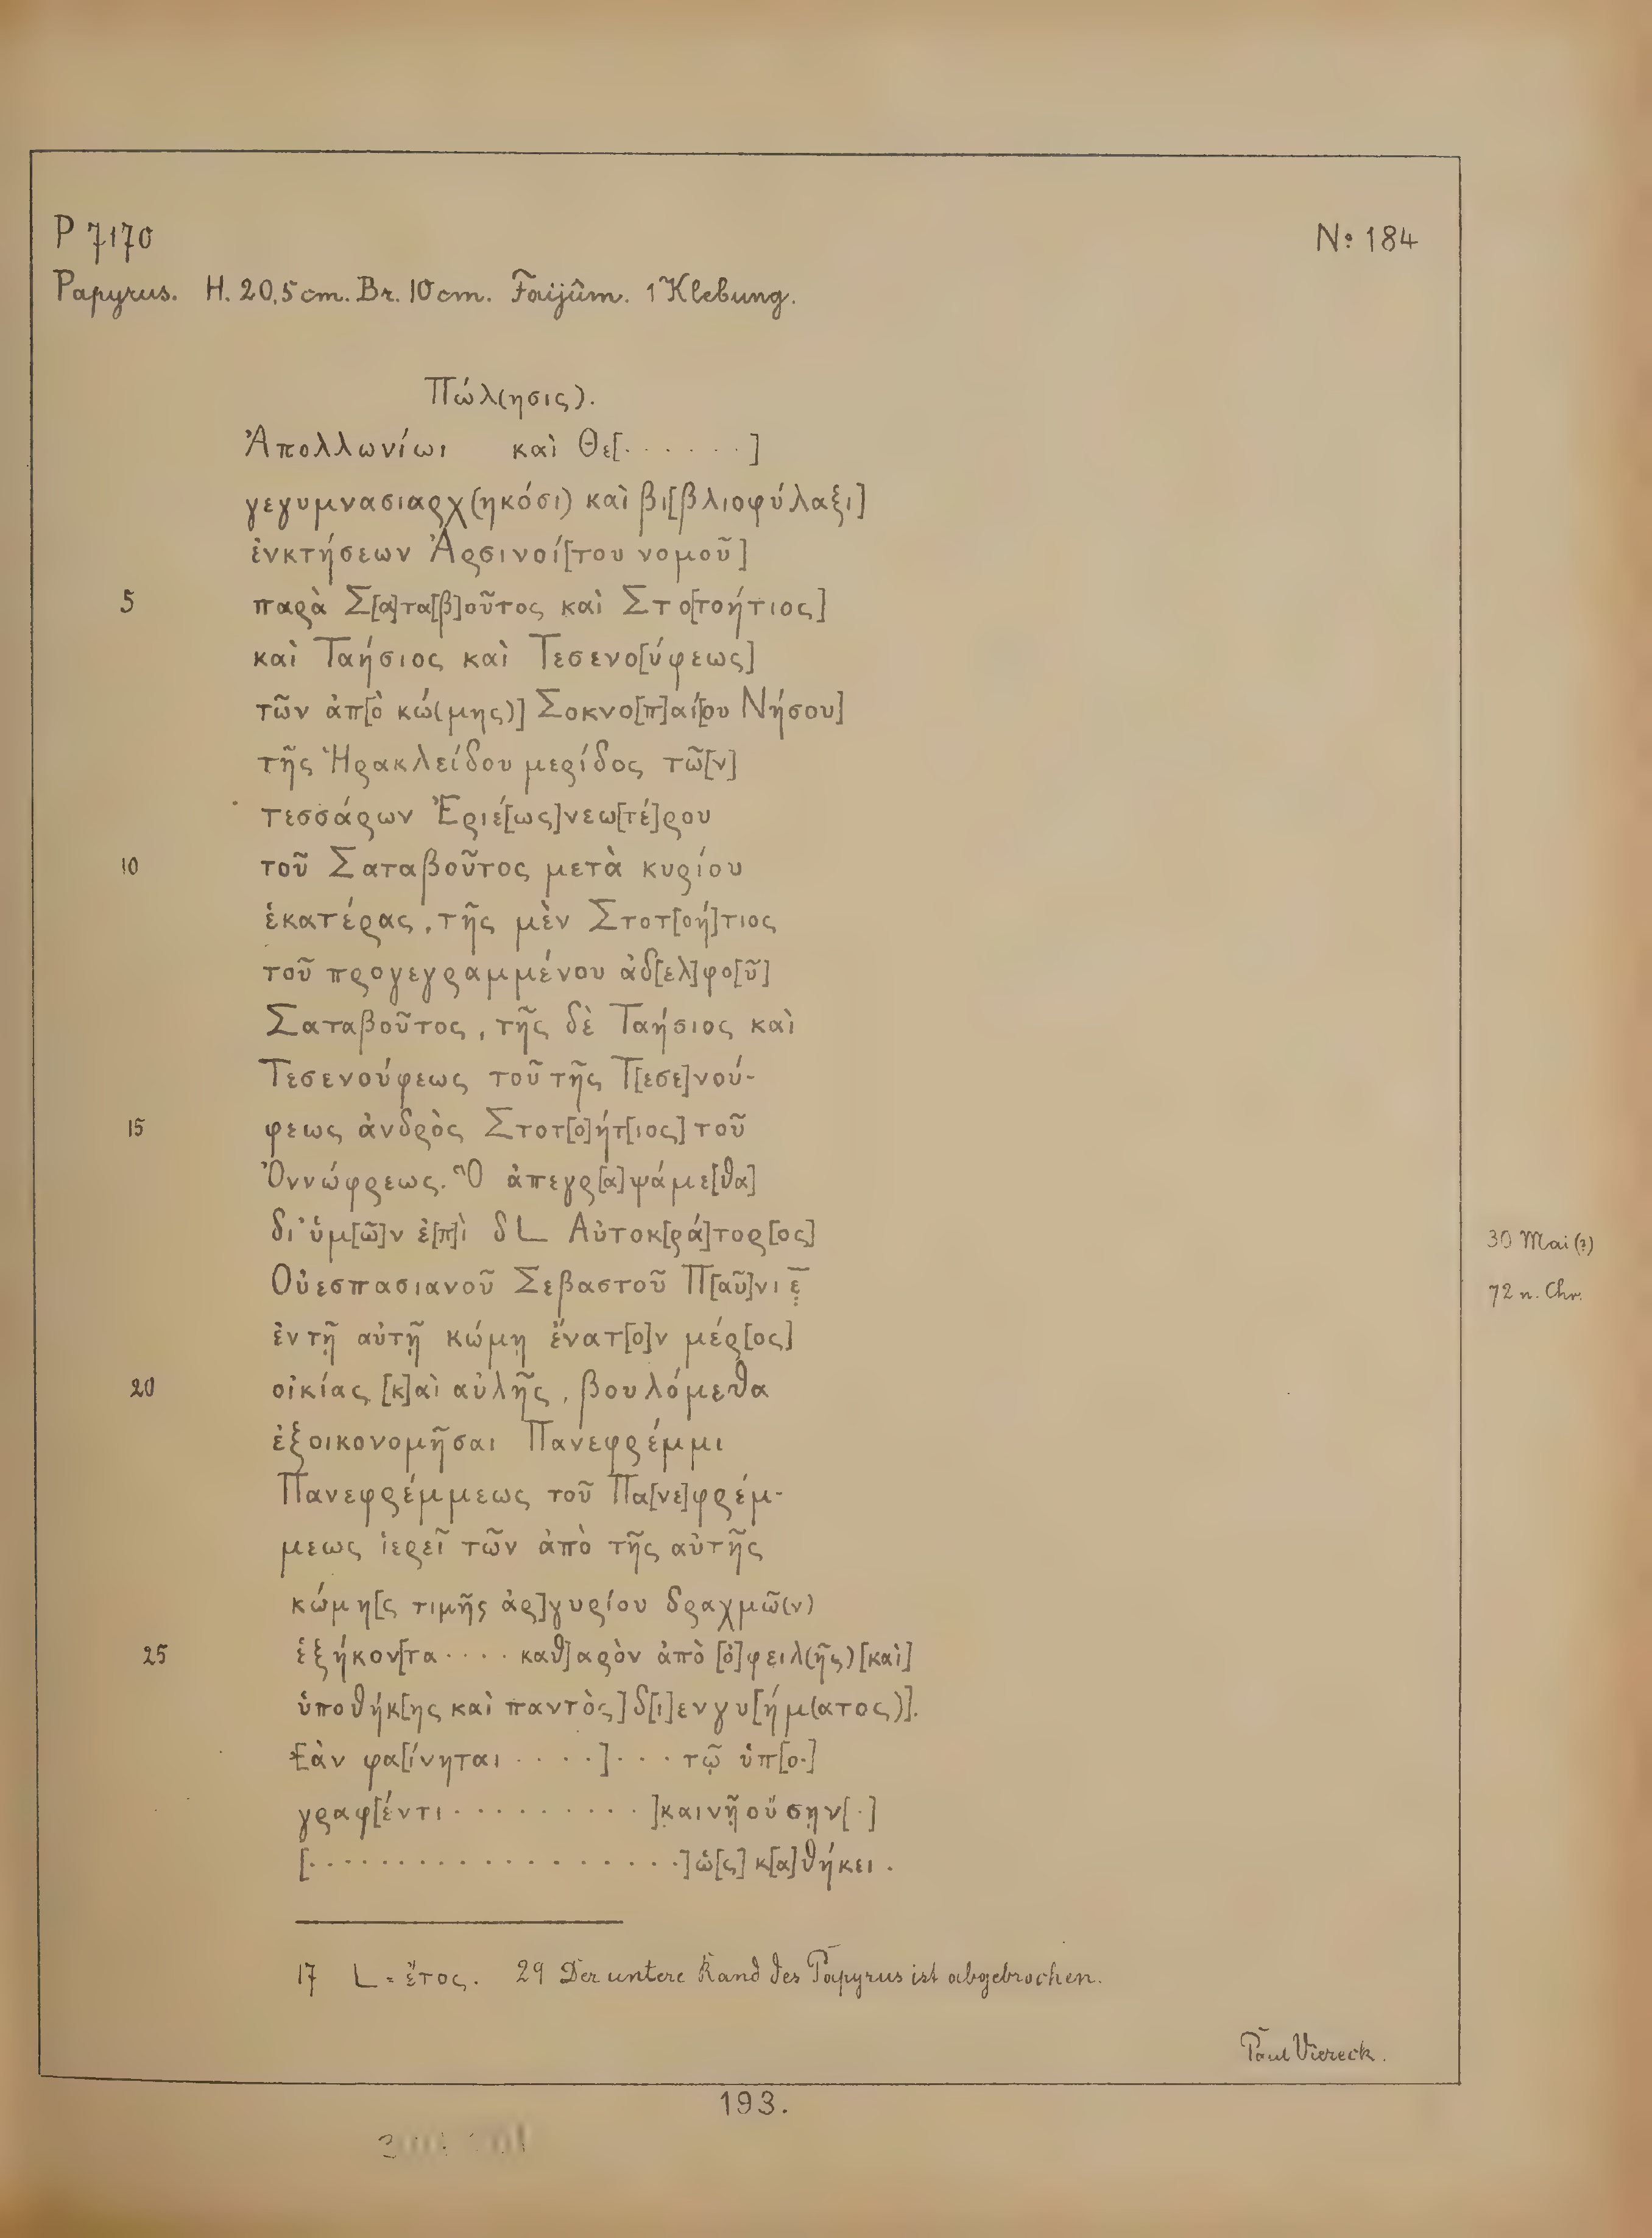 P 7170
No 184
Papyrus. H. 20,5 cm. Br. 10 cm. Faijûm. 1 Klebung.
Πώλ(ησις).
Ἀπολλωνίωι καὶ Θε[· · · · · ·]
γεγυμνασιαρχ(ηκόσι) καὶ βι[βλιοφύλαξι]
ἐνκτήσεων Ἀρσινοί[του νομοῦ]
5 παρὰ Σ[α]τα[β]οῦτος καὶ Στο[τοήτιος]
καὶ Ταήσιος καὶ Τεσενο[ύφεως]
τῶν ἀπ[ὸ κώ(μης)] Σοκνο[π]αί[ου Νήσου]
τῆς Ἡρακλείδου μερίδος τῶ[ν]
τεσσάρων Ἑριέ[ως] νεω[τέ]ρου
10 τοῦ Σαταβοῦτος μετὰ κυρίου
ἑκατέρας, τῆς μὲν Στοτ[οή]τιος
τοῦ προγεγραμμένου ἀδ[ελ]φο[ῦ]
Σαταβοῦτος, τῆς δὲ Ταήσιος καὶ
Τεσενούφεως τοῦ τῆς Τ[εσε]νού-
15 φεως ἀνδρὸς Στοτ[ο]ήτ[ιος] τοῦ
Ὀννώφρεως. Ὃ ἀπεγρ[α]ψάμε[θα]
δι' ὑμ[ῶ]ν ἐ[π]ὶ δ L Αὐτοκ[ρά]τορ[ος]
30 Mai (?)
Οὐεσπασιανοῦ Σεβαστοῦ Π[αῦ]νι ε̄
72 n. Chr.
ἐν τῇ αὐτῇ κώμῃ ἔνατ[ο]ν μέρ[ος]
20 οἰκίας [κ]αὶ αὐλῆς, βουλόμεθα
ἐξοικονομῆσαι Πανεφρέμμι
Πανεφρέμμεως τοῦ Πα[νε]φρέμ-
μεως ἱερεῖ τῶν ἀπὸ τῆς αὐτῆς
κώμη[ς τιμῆς ἀρ]γυρίου δραχμῶ(ν)
25 ἑξήκον[τα · · · · καθ]αρὸν ἀπὸ [ὀ]φειλ(ῆς) [καὶ]
ὑποθήκ[ης καὶ παντὸς] δ[ι]ενγυ[ήμ(ατος)].
Ἐὰν φα[ίνηται · · · ·] · · · τῷ ὑπ[ο-]
γραφ[έντι · · · · · · · · · ·]καινῇ οὔσῃν[·]
[· · · · · · · · · · · · · · · · · · ·] ὡ[ς] κ[α]θήκει.
17 L = ἔτος. 29 Der untere Rand des Papyrus ist abgebrochen.
Paul Viereck.
193.